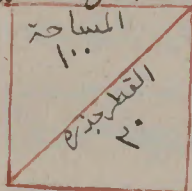 المساحة
١٠٠
القطر جذره
٢٠